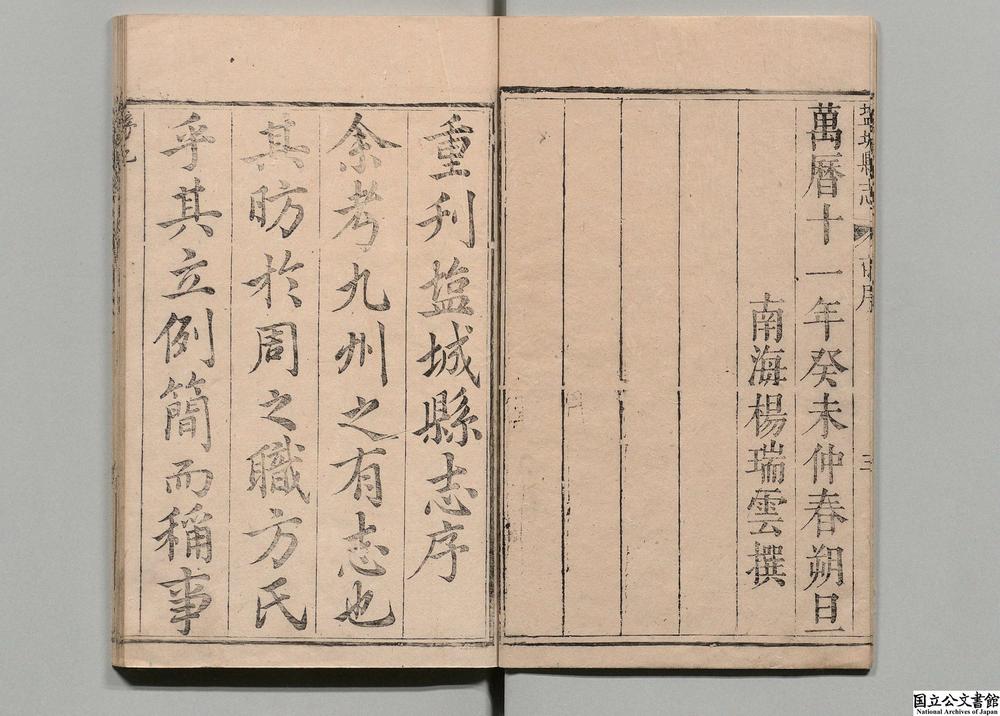 塩城縣志
萬曆十一年癸未仲春朔旦
南海楊瑞雲撰
重刋塩城縣志序
余考九州之有志也
其昉於周之職方氏
乎其立例簡而稱事
国立公文書館
National Archives of Japan